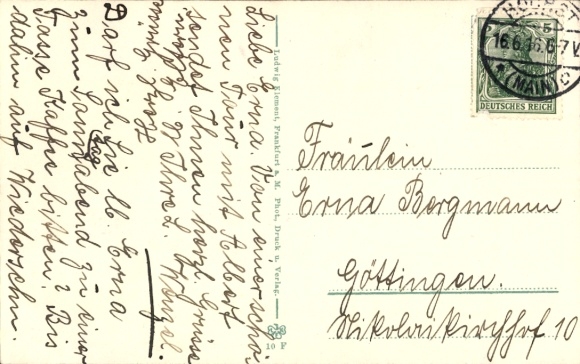 Liebe Erna. Von einer schö-
nen Tour mit Albert
sendet Ihnen herzl. Grüsse
Ihre L. Wenzel.
Darf ich Sie lb. Erna
zum Sonnabend zu einer
Tag
Tasse Kaffee bitten? Bis
dahin auf Wiedersehn.
Ludwig Klement, Frankfurt a. M. Phot. Druck u. Verlag.
10 F
HÖCHST
5
16.6.16.6-7V
* (MAIN) *
DEUTSCHES REICH
Fräulein
Erna Bergmann
Göttingen.
Nikolaikirchhof 10